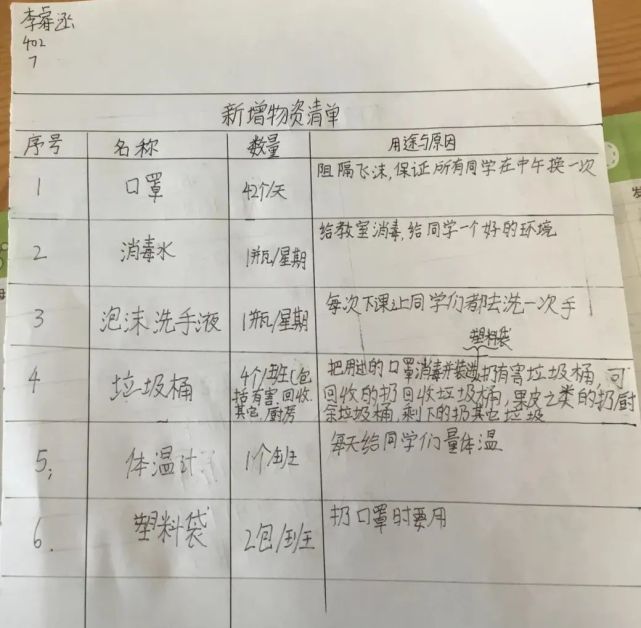 李睿涵
402
7
新增物资清单
序号 名称 数量 用途与原因
1 口罩 42个/天 阻隔飞沫,保证所有同学在中午换一次
2 消毒水 1瓶/星期 给教室消毒,给同学一个好的环境
3 泡沫洗手液 1瓶/星期 每次下课让同学们都去洗一次手
塑料袋
4 垃圾桶 4个/班(包 把用过的口罩消毒并装进扔有害垃圾桶,可
括有害.回收. 回收的扔回收垃圾桶,果皮之类的扔厨
其它,厨房 余垃圾桶,剩下的扔其它垃圾
5; 体温计 1个/班 每天给同学们量体温
6. 塑料袋 2包/班 扔口罩时要用